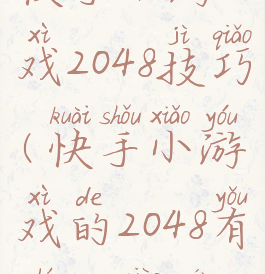 xì jì qiǎo
戏2048技巧
kuài shǒu xiǎo yóu
(快手小游
xì de yǒu
戏的2048有